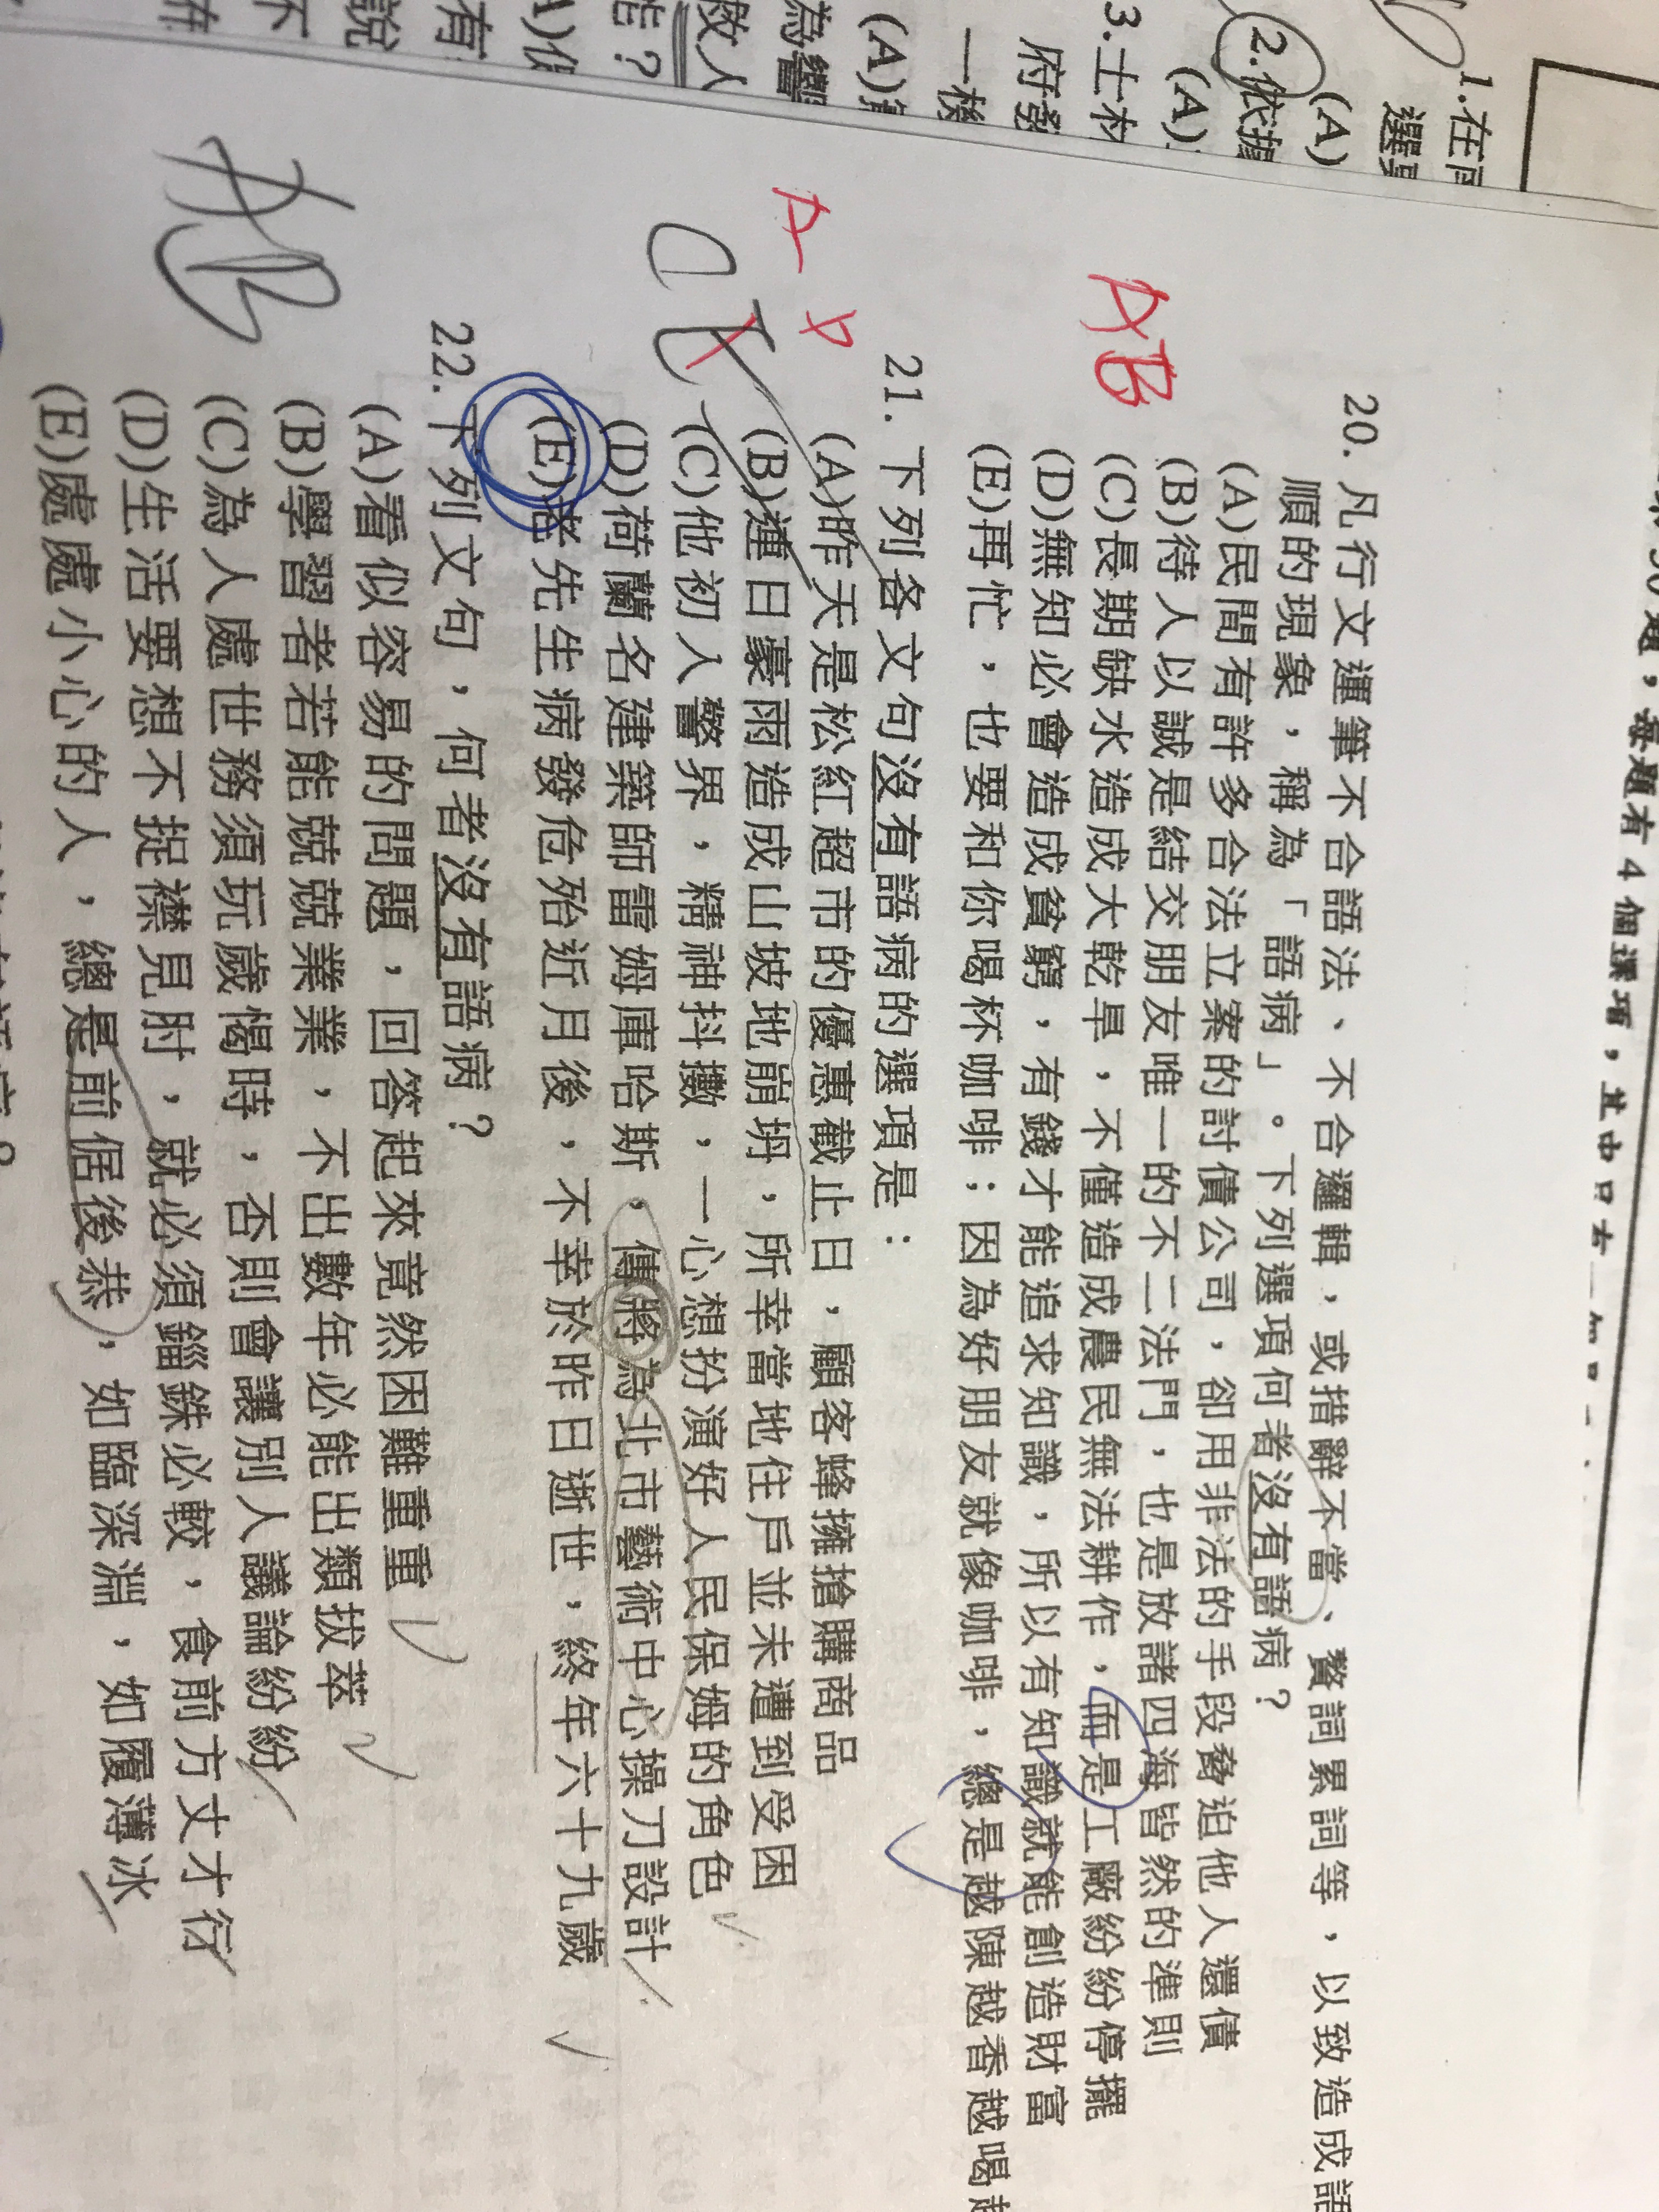 1.在
選
(A)
2.依據
(A)
3.士林
府發
一機
(A)
為響
敗人
能?
有
說
不
每題有4個選項,其中只有
AB
20. 凡行文運筆不合語法、不合邏輯,或措辭不當、贅詞累詞等,以致造成語
順的現象,稱為「語病」。下列選項何者沒有語病?
(A)民間有許多合法立案的討債公司,卻用非法的手段脅迫他人還債
(B)待人以誠是結交朋友唯一的不二法門,也是放諸四海皆然的準則
(C)長期缺水造成大乾旱,不僅造成農民無法耕作,而是工廠紛紛停擺
(D)無知必會造成貧窮,有錢才能追求知識,所以有知識就能創造財富
(E)再忙,也要和你喝杯咖啡;因為好朋友就像咖啡,總是越陳越香越喝
A
21. 下列各文句沒有語病的選項是:
(A)昨天是松紅超市的優惠截止日,顧客蜂擁搶購商品
(B)連日豪雨造成山坡地崩坍,所幸當地住戶並未遭到受困
(C)他初入警界,精神抖擻,一心想扮演好人民保姆的角色
(D)荷蘭名建築師雷姆庫哈斯,傳將為北市藝術中心操刀設計
(E)老先生病發危殆近月後,不幸於昨日逝世,終年六十九歲
AB
22. 下列文句,何者沒有語病?
(A)看似容易的問題,回答起來竟然困難重重
(B)學習者若能兢兢業業,不出數年必能出類拔萃
(C)為人處世務須玩歲愒時,否則會讓別人議論紛紛
(D)生活要想不捉襟見肘,就必須錙銖必較,食前方丈才行
(E)處處小心的人,總是前倨後恭,如臨深淵,如履薄冰